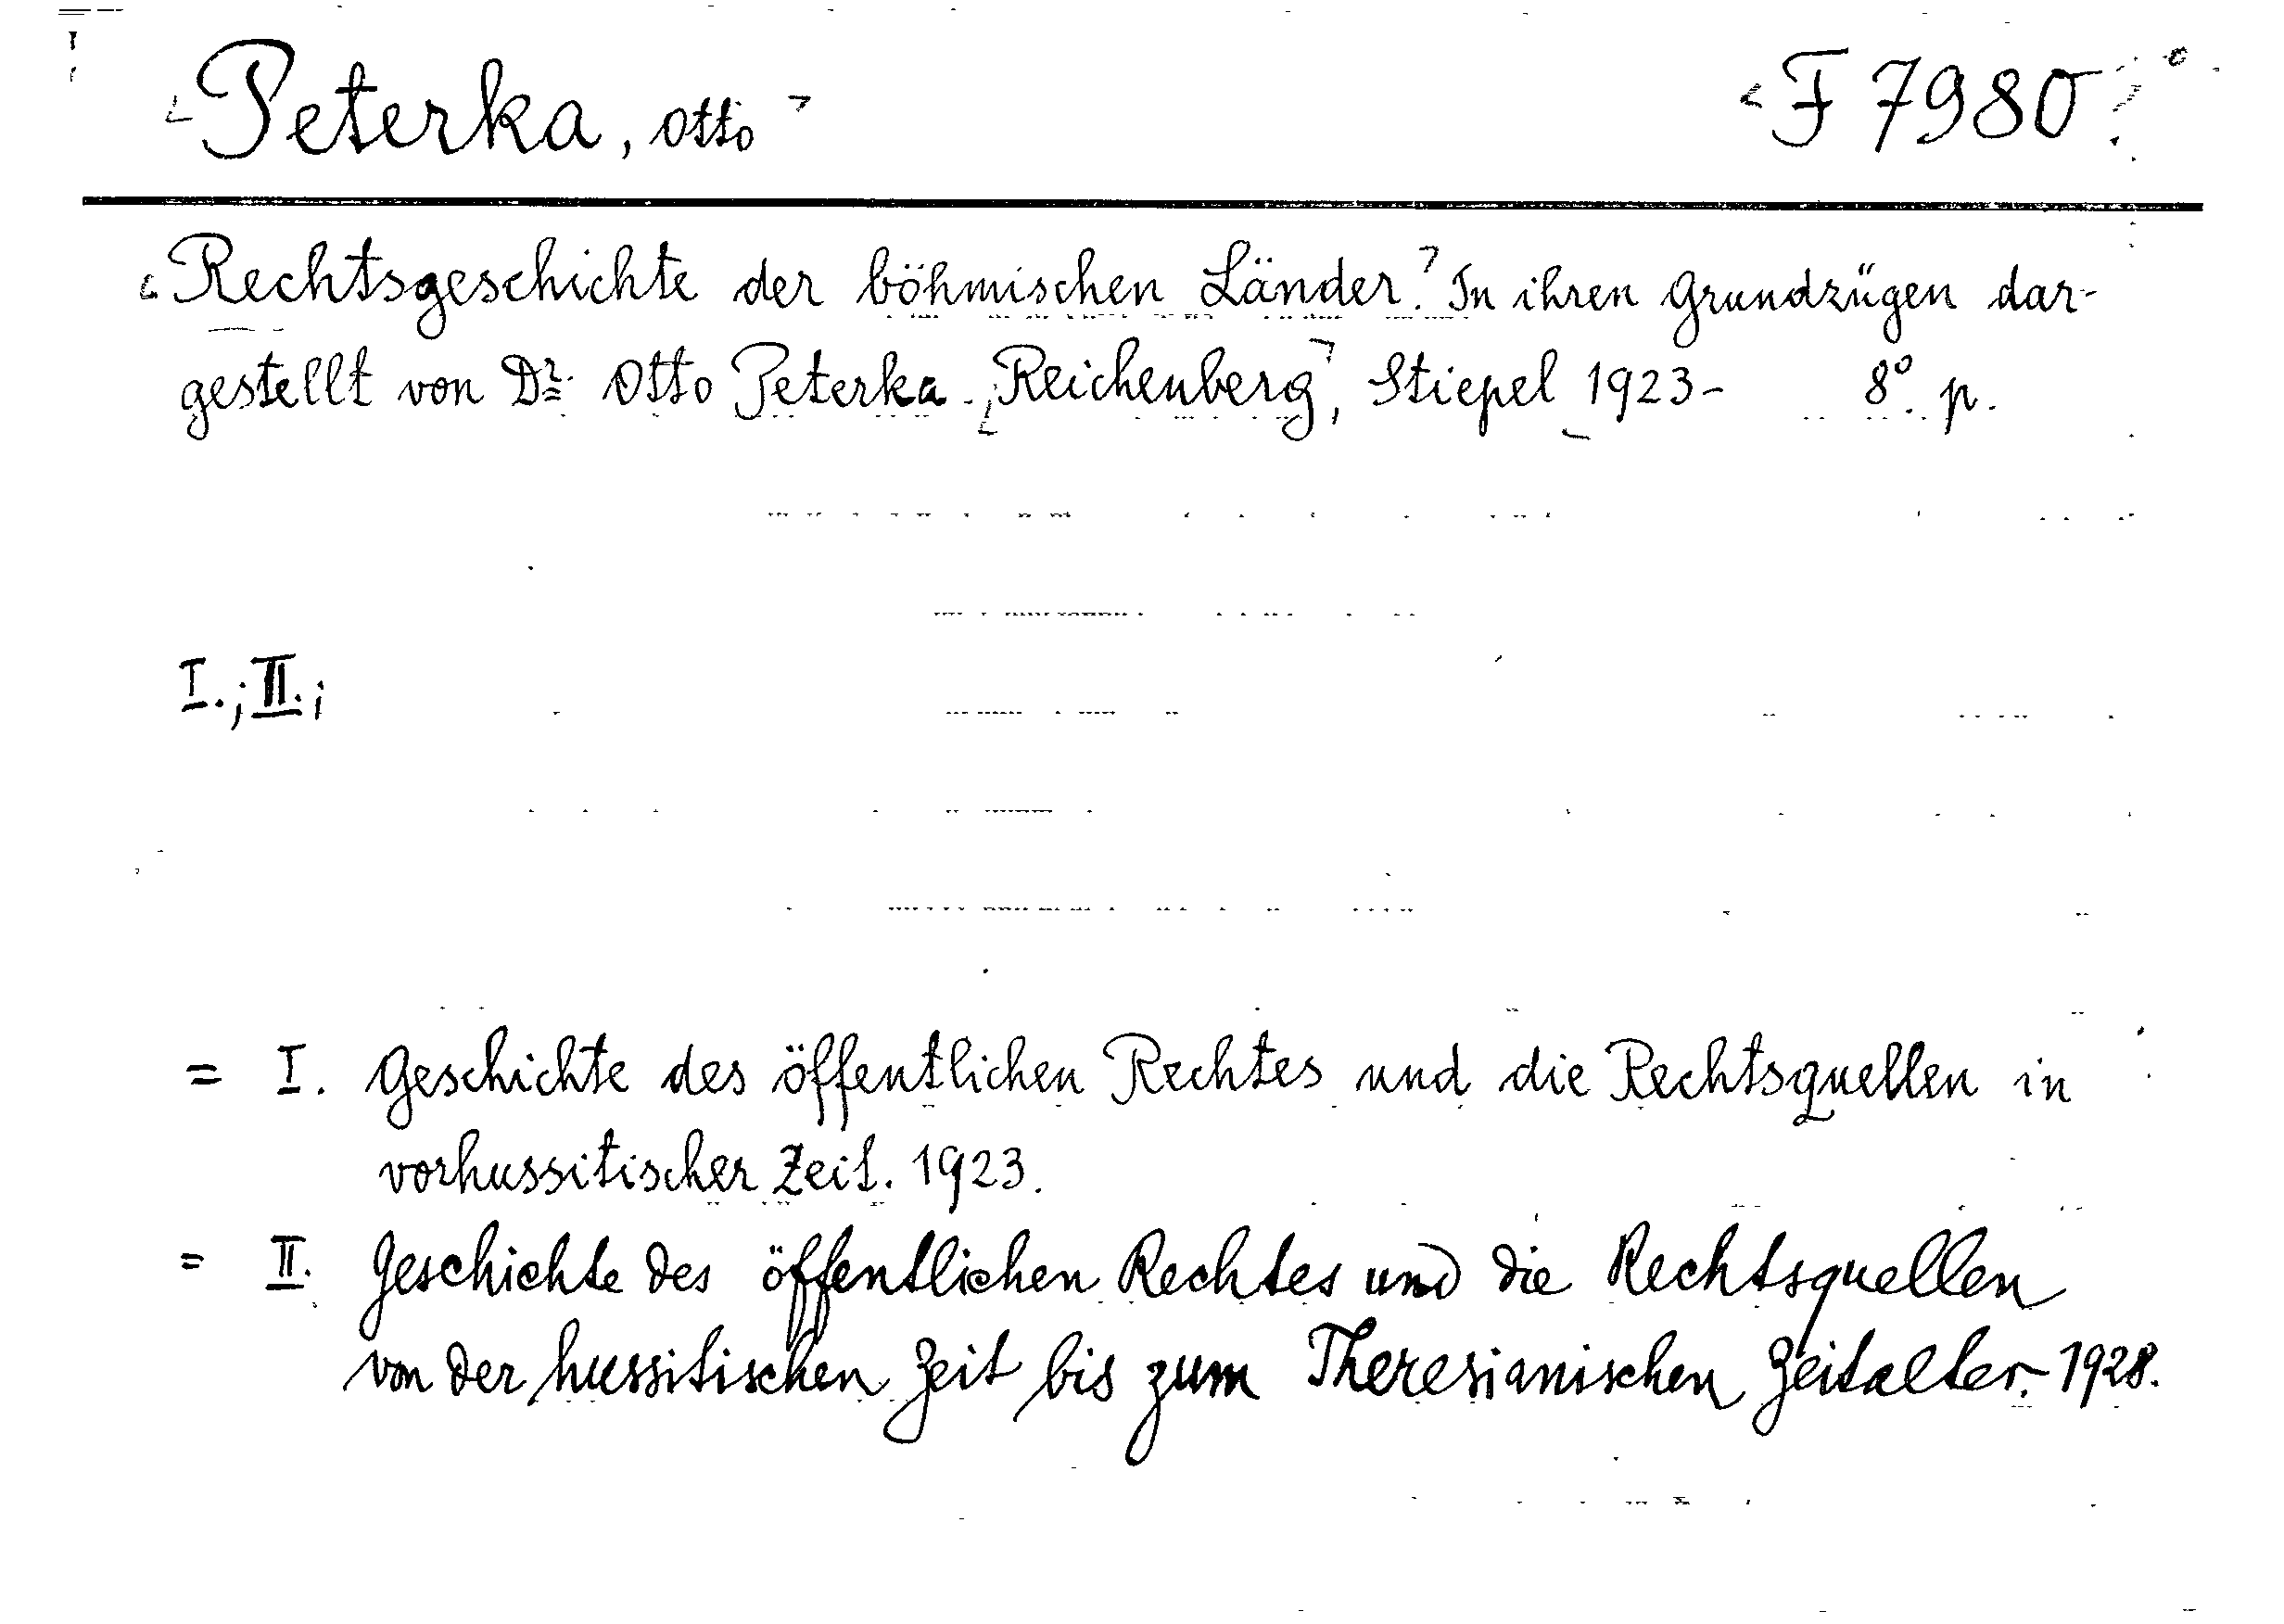 Peterka, Otto F 7980
Rechtsgeschichte der böhmischen Länder. In ihren Grundzügen dar-
gestellt von Dr. Otto Peterka. Reichenberg, Stiepel 1923- 8°. p.
I.; II.;
= I. Geschichte des öffentlichen Rechtes und die Rechtsquellen in
vorhussitischer Zeit. 1923.
= II. Geschichte des öffentlichen Rechtes und die Rechtsquellen
von der hussitischen Zeit bis zum Theresianischen Zeitalter. 1928.